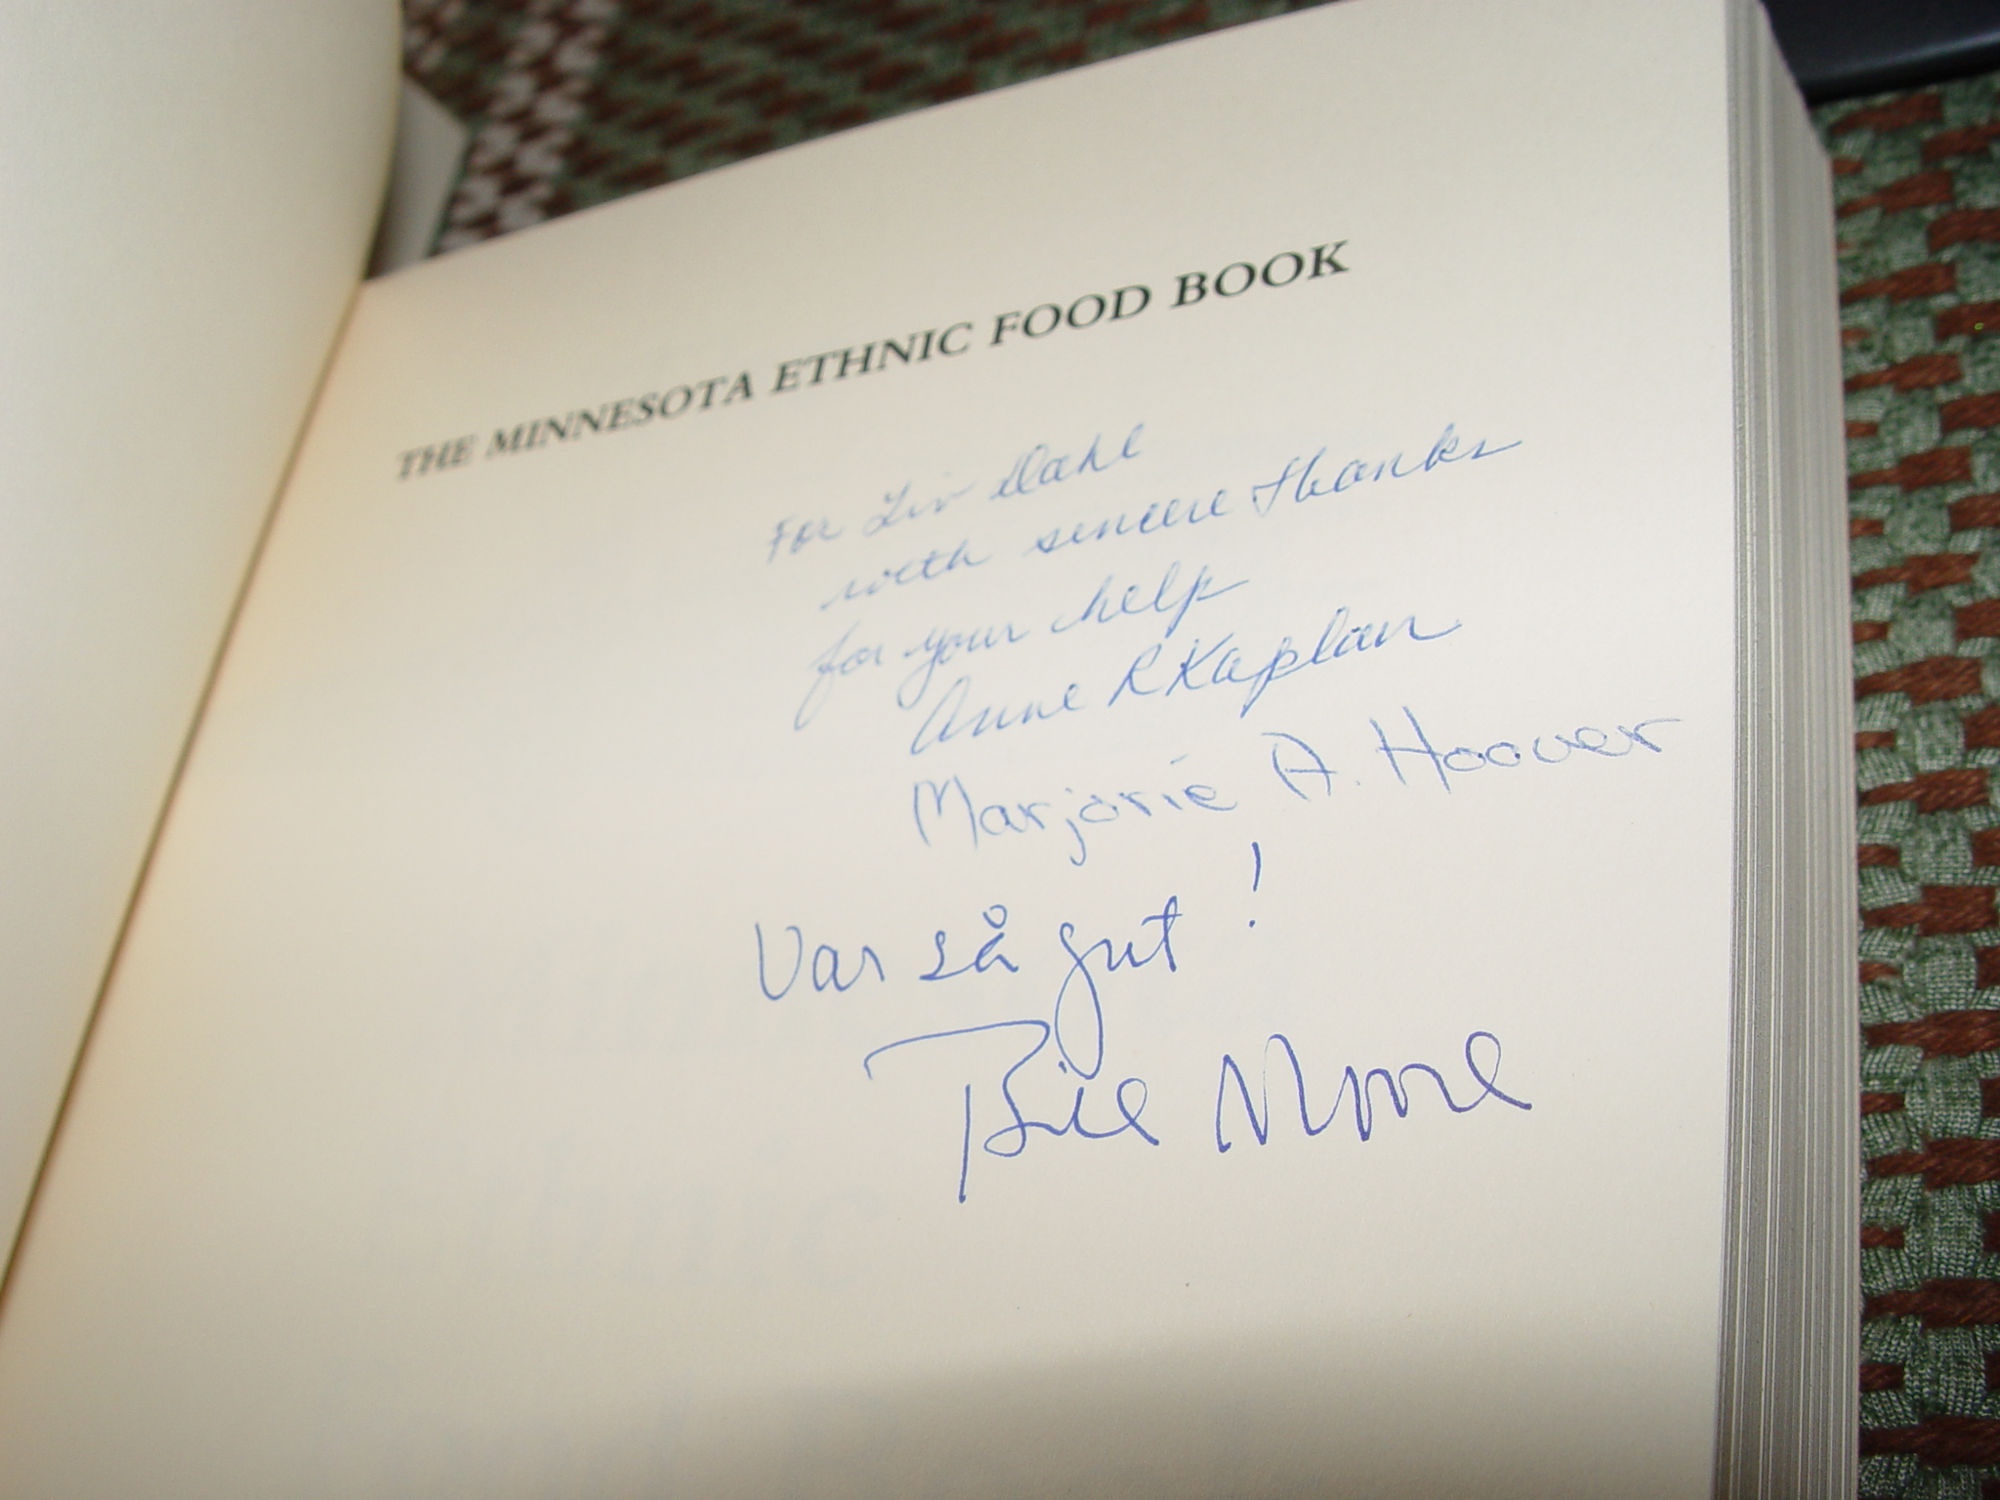 THE MINNESOTA ETHNIC FOOD BOOK
For Liv Dahl
with sincere thanks
for your help
Anne R Kaplan
Marjorie A. Hoover
Var så gut!
Bill Moore